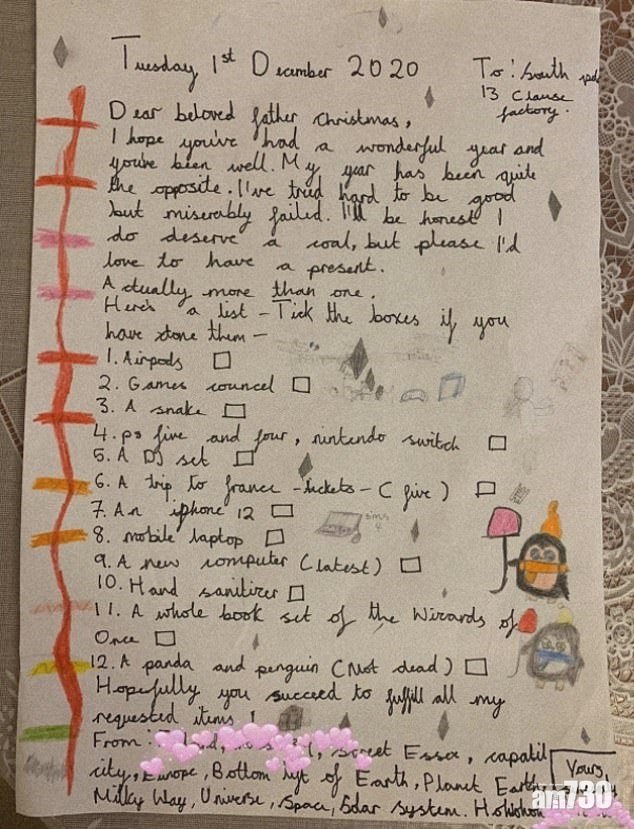 Tuesday 1st December 2020
To: South
13 Clause
factory.
Dear beloved father Christmas,
I hope you've had a wonderful year and
you've been well. My year has been quite
the opposite. I've tried hard to be good
but miserably failed. I'll be honest I
do deserve a coal, but please I'd
love to have a present.
Actually more than one.
Here's a list - Tick the boxes if you
have done them -
1. Airpods
2. Games councel
3. A snake
4. ps five and four, nintendo switch
5. A DJ set
6. A trip to france - tickets - (five)
7. An iphone 12
8. mobile laptop
sims
9. A new computer (latest)
10. Hand sanitizer
11. A whole book set of the Wizards of
Once
12. A panda and penguin (Not dead)
Hopefully you succeed to fulfill all my
requested items!
From: street Essex, capatil
city, Europe, Bottom of Earth, Planet Earth
Milky Way, Universe, Space, Solar system.
Yours
am730